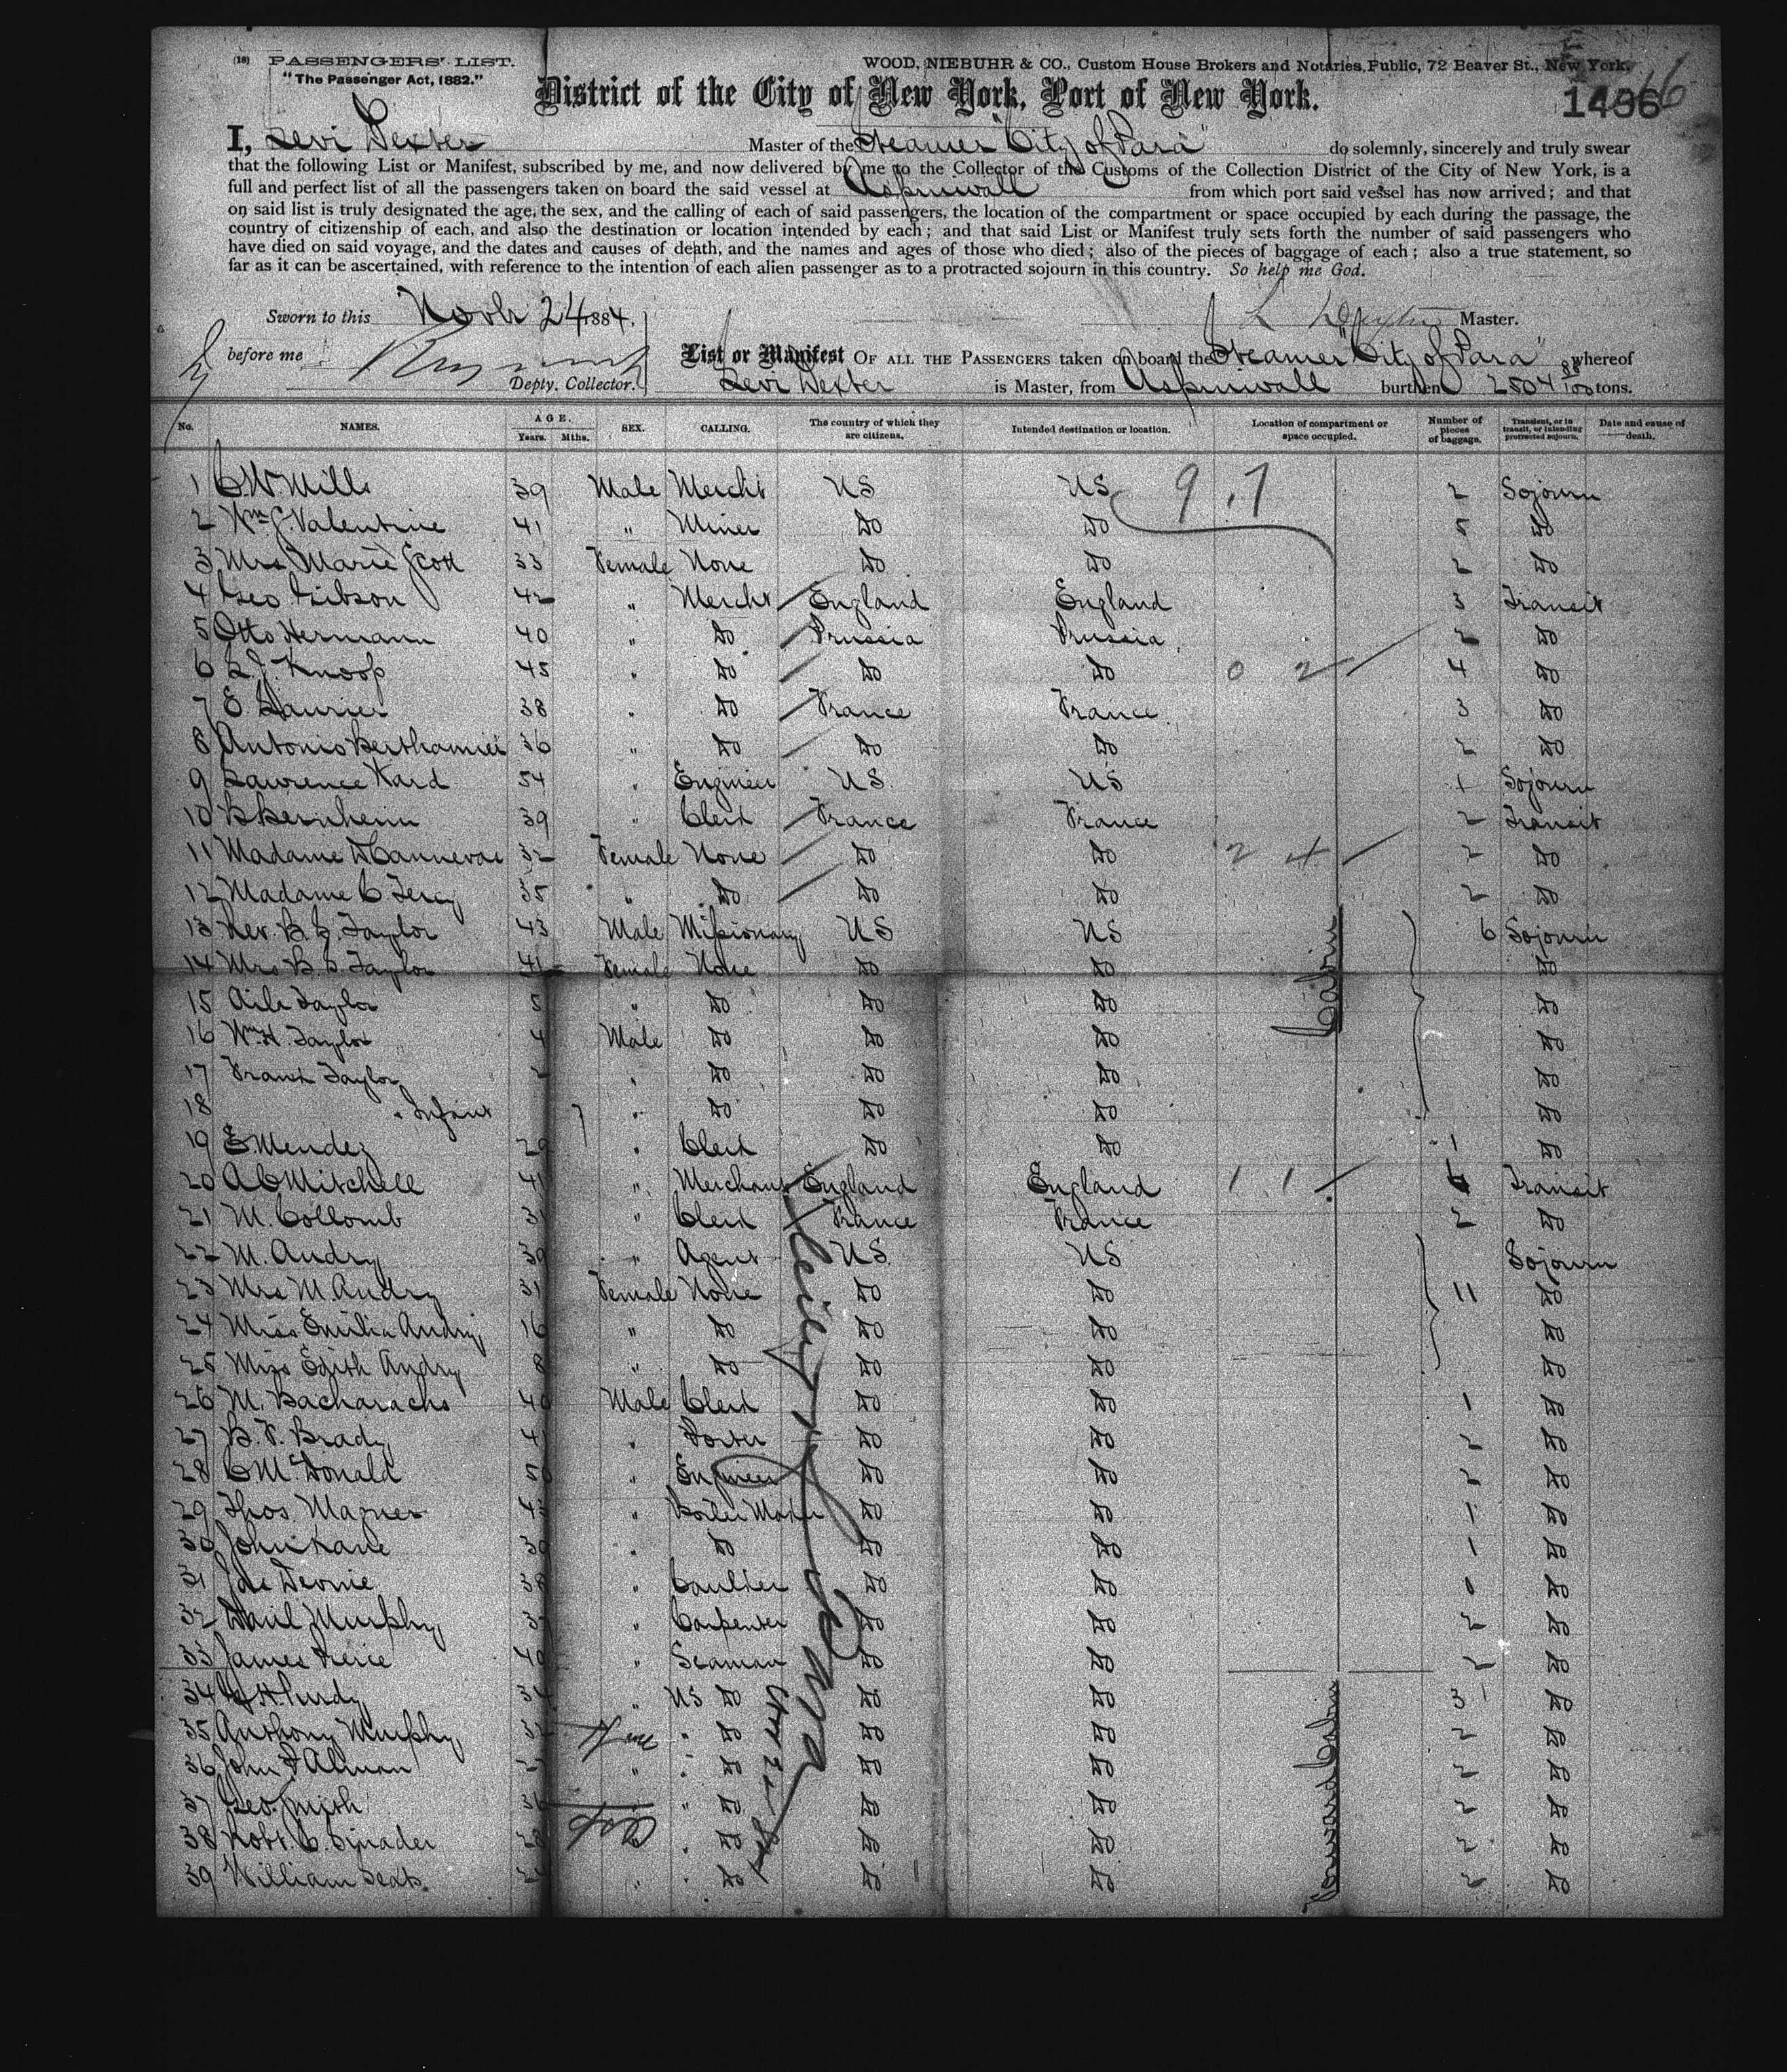 (18) PASSENGERS' LIST.
"The Passenger Act, 1882."
WOOD, NIEBUHR & CO., Custom House Brokers and Notaries Public, 72 Beaver St., New York.
District of the City of New York, Port of New York.
1436
I, Levi Dexter Master of the Steamer "City of Para" do solemnly, sincerely and truly swear
that the following List or Manifest, subscribed by me, and now delivered by me to the Collector of the Customs of the Collection District of the City of New York, is a
full and perfect list of all the passengers taken on board the said vessel at Aspinwall from which port said vessel has now arrived; and that
on said list is truly designated the age, the sex, and the calling of each of said passengers, the location of the compartment or space occupied by each during the passage, the
country of citizenship of each, and also the destination or location intended by each; and that said List or Manifest truly sets forth the number of said passengers who
have died on said voyage, and the dates and causes of death, and the names and ages of those who died; also of the pieces of baggage of each; also a true statement, so
far as it can be ascertained, with reference to the intention of each alien passenger as to a protracted sojourn in this country. So help me God.
Sworn to this Novbr 24 1884.
L Dexter Master.
before me
Depty. Collector.
List or Manifest OF ALL THE PASSENGERS taken on board the Steamer "City of Para" whereof
Levi Dexter is Master, from Aspinwall burthen 2504 88/100 tons.
No. NAMES. AGE. Years. Mths. SEX. CALLING. The country of which they are citizens. Intended destination or location. Location of compartment or space occupied. Number of pieces of baggage. Transient, or in transit, or intending protracted sojourn. Date and cause of death.
1 C W Mills 39 Male Mercht US US 9.7 2 Sojourn
2 Wm J Valentine 41 " Miner Do Do 5 Do
3 Mrs Marie Scott 33 Female None Do Do 2 Do
4 Geo Gibson 42 " Mercht England England 3 Transit
5 Otto Hermann 40 " Do Prussia Prussia 2 Do
6 L J. Knoop 45 " Do Do Do 0 2 4 Do
7 E. Laurier 38 " Do France France 3 Do
8 Antonio 36 " Do Do Do 2 Do
9 Lawrence Ward 54 " Engineer US US 1 Sojourn
10 B Bernheim 39 " Clerk France France 2 Transit
11 Madame 32 Female None Do Do 2 4 2 Do
12 Madame C 35 " Do Do Do 2 Do
13 Rev. B. S. Taylor 43 Male Missionary US US 6 Sojourn
14 Mrs B. S. Taylor 41 Female None Do Do Do
15 Taylor 5 " Do Do Do Do
16 Wm H. Taylor 4 Male Do Do Do Do
17 Frank Taylor 2 " Do Do Do Do
18 " Infant 7 " Do Do Do Do
Cabin
19 E. Mendez 29 " Clerk Do Do 1 Do
20 A C Mitchell 41 " Merchant England England 1 1 4 Transit
21 M. Collomb 31 " Clerk France France 2 Do
22 M. Andry 39 " Agent US US Sojourn
23 Mrs M. Andry 31 Female None Do Do 11 Do
24 Miss Emilia Andry 16 " Do Do Do Do
25 Miss Edith Andry 8 " Do Do Do Do
26 M. Bacharachs 40 Male Clerk Do Do 1 Do
27 B. F. Brady 41 " Porter Do Do 2 Do
28 C McDonald 50 " Engineer Do Do 2 Do
29 Thos. Magner 43 " Boiler Maker Do Do 1 Do
30 John Kane 39 " Do Do Do 1 Do
31 38 " Caulker Do Do 1 Do
32 Danl Murphy 37 " Carpenter Do Do 2 Do
33 James Pierce 40 " Seaman Do Do 2 Do
34 H. Purdy 34 " US Do Do Do 3 Do
35 Anthony Murphy 32 " Do Do Do 2 Do
36 John F Alman 27 " " Do Do Do 2 Do
37 Geo. Smith 36 " Do Do Do 2 Do
38 Robt. C. 28 " " Do Do Do 2 Do
39 William 2 " " Do Do Do 2 Do
Forward Cabin